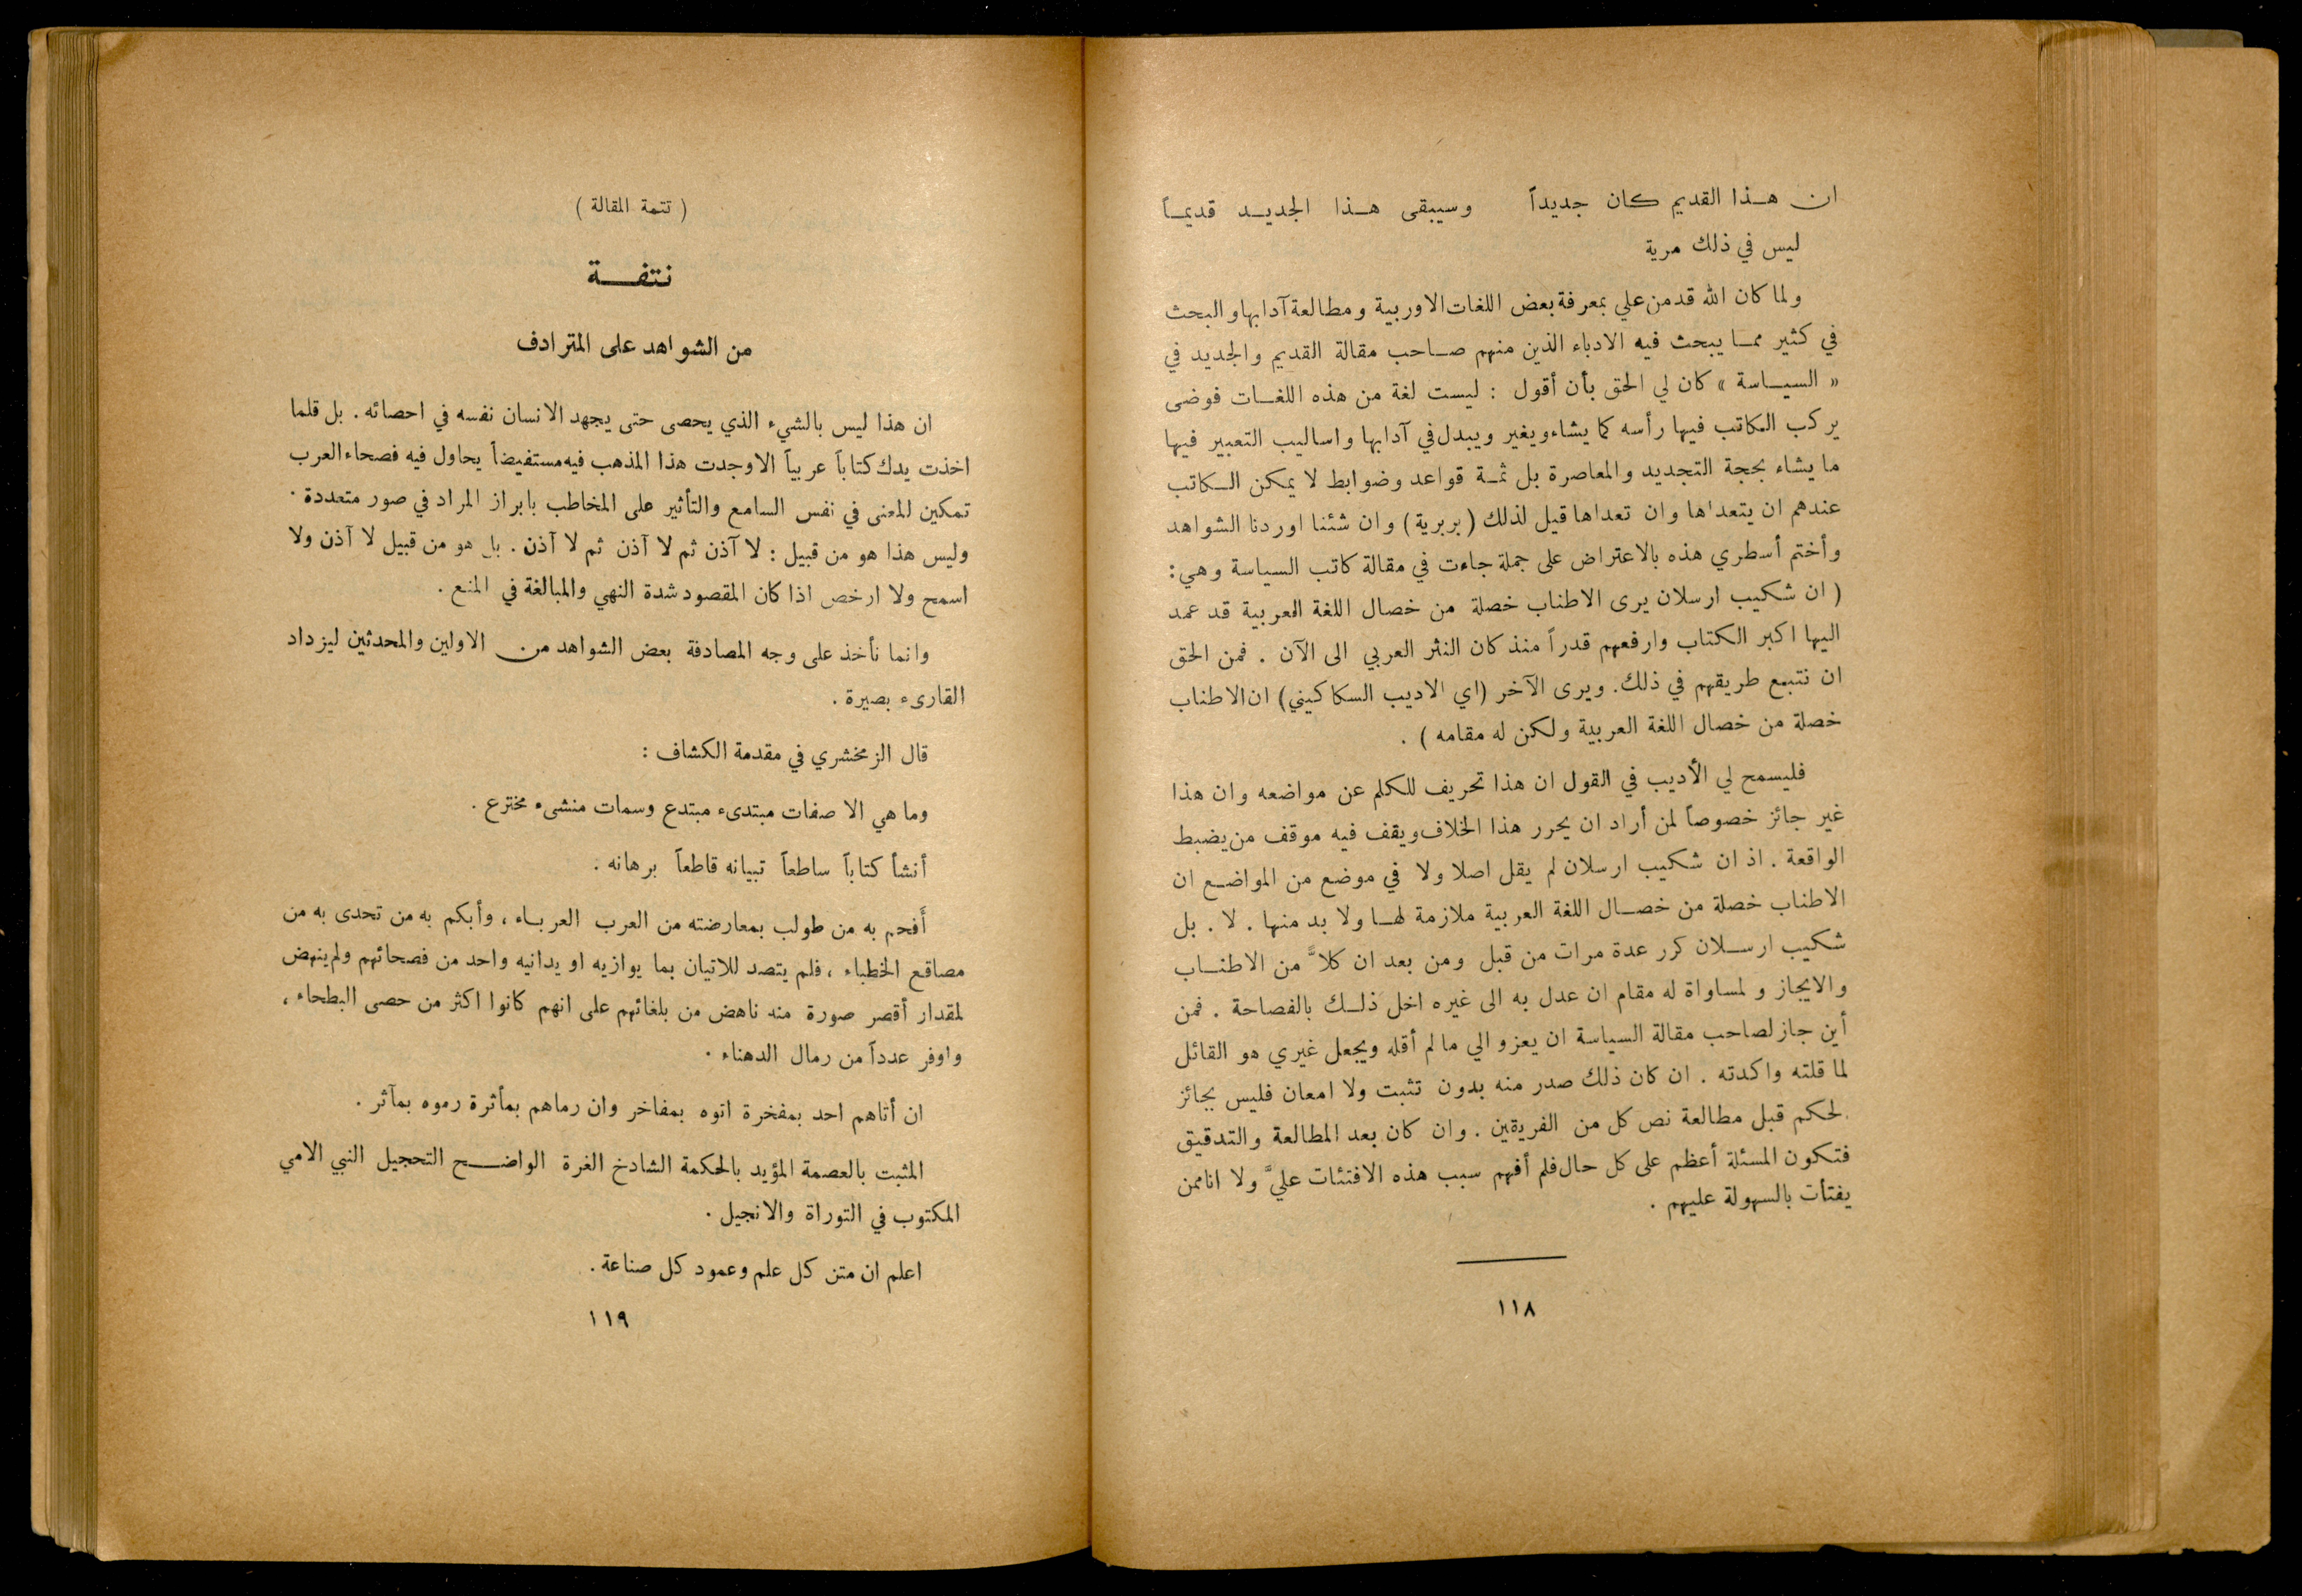 ان هذا القديم كان جديداً وسيبقى هذا الجديد قديماً
ليس في ذلك مرية
ولما كان الله قد من علي بمعرفة بعض اللغات الاوربية ومطالعة آدابها والبحث
في كثير مما يبحث فيه الادباء الذين منهم صاحب مقالة القديم والجديد في
« السياسة » كان لي الحق بأن أقول : ليست لغة من هذه اللغات فوضى
يركب الكاتب فيها رأسه كما يشاء ويغير ويبدل في آدابها واساليب التعبير فيها
ما يشاء بحجة التجديد والمعاصرة بل ثمة قواعد وضوابط لا يمكن الكاتب
عندهم ان يتعداها وان تعداها قيل لذلك ( بربرية ) وان شئنا اوردنا الشواهد
وأختم أسطري هذه بالاعتراض على جملة جاءت في مقالة كاتب السياسة وهي :
( ان شكيب ارسلان يرى الاطناب خصلة من خصال اللغة العربية قد عمد
اليها اكبر الكتاب وارفعهم قدراً منذ كان النثر العربي الى الآن . فمن الحق
ان نتبع طريقهم في ذلك . ويرى الآخر (اي الاديب السكاكيني) ان الاطناب
خصلة من خصال اللغة العربية ولكن له مقامه ) .
فليسمح لي الأديب في القول ان هذا تحريف للكلم عن مواضعه وان هذا
غير جائز خصوصاً لمن أراد ان يحرر هذا الخلاف ويقف فيه موقف من يضبط
الواقعة . اذ ان شكيب ارسلان لم يقل اصلا ولا في موضع من المواضع ان
الاطناب خصلة من خصال اللغة العربية ملازمة لها ولا بد منها . لا . بل
شكيب ارسلان كرر عدة مرات من قبل ومن بعد ان كلاًّ من الاطناب
والايجاز و لمساواة له مقام ان عدل به الى غيره اخل ذلك بالفصاحة . فمن
أين جاز لصاحب مقالة السياسة ان يعزو الي ما لم أقله ويجعل غيري هو القائل
لما قلته واكدته . ان كان ذلك صدر منه بدون تثبت ولا امعان فليس بجائز
لحكم قبل مطالعة نص كل من الفريقين . وان كان بعد المطالعة والتدقيق
فتكون المسئلة أعظم على كل حال فلم أفهم سبب هذه الافتئات عليَّ ولا انا ممن
يفتأت بالسهولة عليهم .
١١٨
( تتمة المقالة )
نتفة
من الشواهد على المترادف
ان هذا ليس بالشيء الذي يحصى حتى يجهد الانسان نفسه في احصائه . بل قلما
اخذت يدك كتاباً عربياً الا وجدت هذا المذهب فيه مستفيضاً يحاول فيه فصحاء العرب
تمكين المعنى في نفس السامع والتأثير على المخاطب بابراز المراد في صور متعددة .
وليس هذا هو من قبيل : لا آذن ثم لا آذن ثم لا آذن . بل هو من قبيل لا آذن ولا
اسمح ولا ارخص اذا كان المقصود شدة النهي والمبالغة في المنع .
وانما نأخذ على وجه المصادفة بعض الشواهد من الاولين والمحدثين ليزداد
القارىء بصيرة .
قال الزمخشري في مقدمة الكشاف :
وما هي الا صفات مبتدىء مبتدع وسمات منشىء مخترع .
أنشأ كتاباً ساطعاً تبيانه قاطعاً برهانه .
أَفحم به من طولب بمعارضته من العرب العرباء ، وأبكم به من تحدى به من
مصاقع الخطباء ، فلم يتصد للاتيان بما يوازيه او يدانيه واحد من فصحائهم ولم ينهض
لمقدار أقصر صورة منه ناهض من بلغائهم على انهم كانوا اكثر من حصى البطحاء ،
واوفر عدداً من رمال الدهناء .
ان أتاهم احد بمفخرة اتوه بمفاخر وان رماهم بمأثرة رموه بمآثر .
المثبت بالعصمة المؤيد بالحكمة الشادخ الغرة الواضح التحجيل النبي الامي
المكتوب في التوراة والانجيل .
اعلم ان متن كل علم وعمود كل صناعة .
١١٩